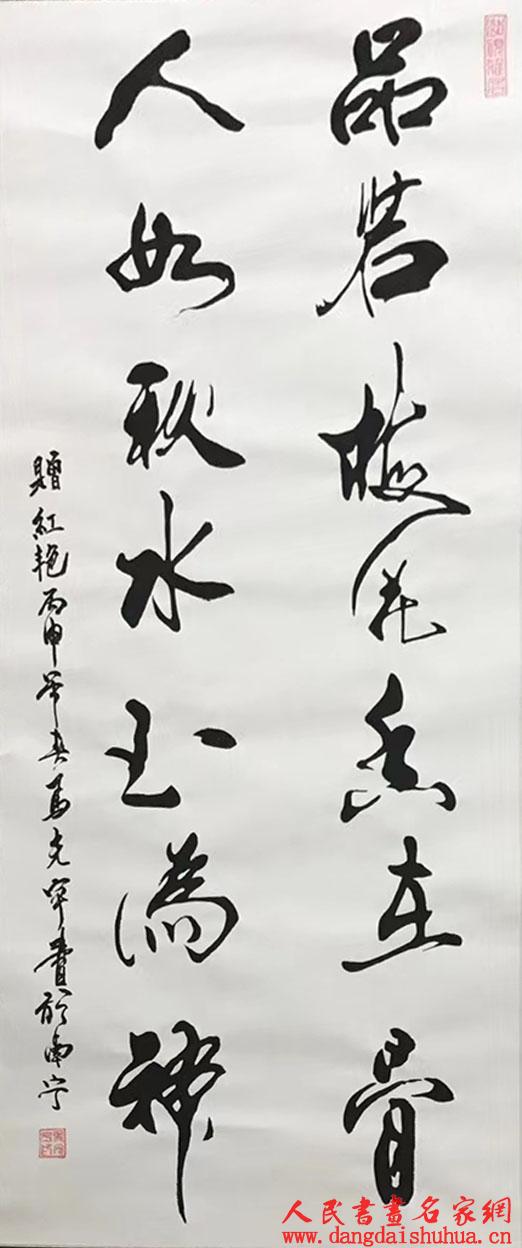 品若梅花香在骨
人如秋水玉为神
赠红艳丙申年春马克军书于南宁
人民書畫名家網
www.dangdaishuhua.cn